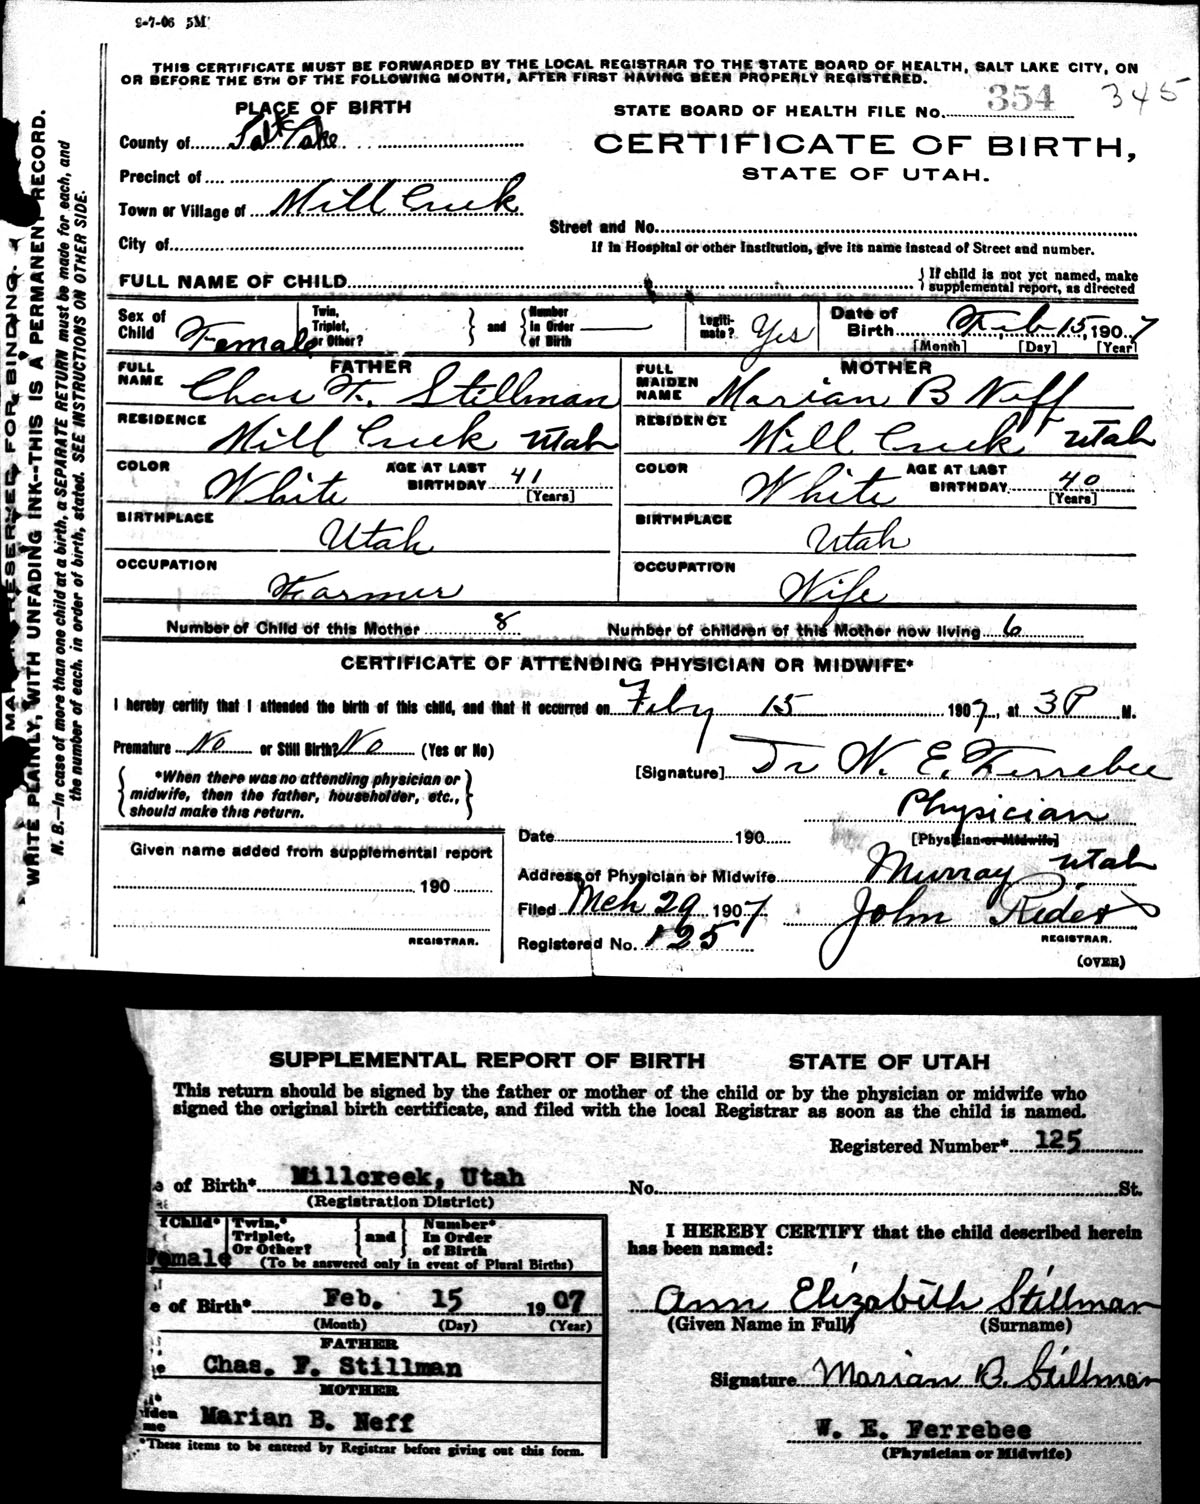 9-7-06 5M
THIS CERTIFICATE MUST BE FORWARDED BY THE LOCAL REGISTRAR TO THE STATE BOARD OF HEALTH, SALT LAKE CITY, ON
OR BEFORE THE 5TH OF THE FOLLOWING MONTH, AFTER FIRST HAVING BEEN PROPERLY REGISTERED.
PLACE OF BIRTH
STATE BOARD OF HEALTH FILE No. 354 345
County of Salt Lake
CERTIFICATE OF BIRTH,
STATE OF UTAH.
Precinct of
Town or Village of Mill Creek
Street and No.
City of
If in Hospital or other Institution, give its name instead of Street and number.
FULL NAME OF CHILD
If child is not yet named, make
supplemental report, as directed
Sex of Child Female
Twin, Triplet, or Other? and Number in Order of Birth
Legiti-mate? Yes
Date of Birth Feb 15, 1907
[Month] [Day] [Year]
FATHER
FULL NAME Chas F. Stillman
RESIDENCE Mill Creek Utah
COLOR White AGE AT LAST BIRTHDAY 41 [Years]
BIRTHPLACE Utah
OCCUPATION Farmer
MOTHER
FULL MAIDEN NAME Marian B Neff
RESIDENCE Mill Creek Utah
COLOR White AGE AT LAST BIRTHDAY 40 [Years]
BIRTHPLACE Utah
OCCUPATION Wife
Number of Child of this Mother 8 Number of children of this Mother now living 6
CERTIFICATE OF ATTENDING PHYSICIAN OR MIDWIFE*
I hereby certify that I attended the birth of this child, and that it occurred on Feby 15 1907, at 3P M.
Premature No or Still Birth? No (Yes or No)
[Signature] Dr W. E. Ferrebee
*When there was no attending physician or
midwife, then the father, householder, etc.,
should make this return.
Physician
[Physician or Midwife]
Given name added from supplemental report
190
REGISTRAR.
Date 190
Address of Physician or Midwife Murray Utah
Filed Mch 29 1907 John Rider
Registered No. 125 REGISTRAR.
(OVER)
RESERVED FOR BINDING.
WRITE PLAINLY, WITH UNFADING INK--THIS IS A PERMANENT RECORD.
N. B.—In case of more than one child at a birth, a SEPARATE RETURN must be made for each, and
the number of each, in order of birth, stated. SEE INSTRUCTIONS ON OTHER SIDE.
SUPPLEMENTAL REPORT OF BIRTH STATE OF UTAH
This return should be signed by the father or mother of the child or by the physician or midwife who
signed the original birth certificate, and filed with the local Registrar as soon as the child is named.
Registered Number* 125
e of Birth* Millcreek, Utah No. St.
(Registration District)
f Child* Female
Twin,* Triplet, Or Other? and Number* In Order of Birth
(To be answered only in event of Plural Births)
e of Birth* Feb. 15 1907
(Month) (Day) (Year)
FATHER
Chas. F. Stillman
MOTHER
Marian B. Neff
*These items to be entered by Registrar before giving out this form.
I HEREBY CERTIFY that the child described herein
has been named:
Ann Elizabeth Stillman
(Given Name in Full) (Surname)
Signature Marian B. Stillman
W. E. Ferrebee
(Physician or Midwife)